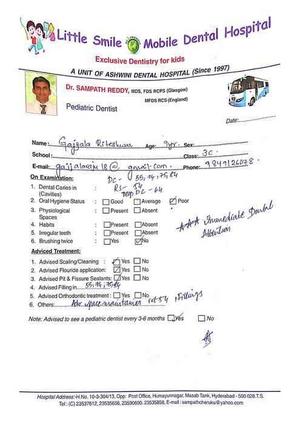 Little Smile Mobile Dental Hospital
Exclusive Dentistry for kids
A UNIT OF ASHWINI DENTAL HOSPITAL (Since 1997)
Dr. SAMPATH REDDY, MDS, FDS RCPS (Glasgow)
MFDS RCS (England)
Pediatric Dentist
Date:
Name: Gajjala Age: 9yr. Sex:
School: Class: 3C
E-mail: gajjalaraju18@gmail.com Phone: 9849126038
On Examination: DC - 55, 75, 84
1. Dental Caries in (Cavities) : RS - 54
DC - 64
2. Oral Hygiene Status : Good Average Poor
3. Physiological Spaces : Present Absent
4. Habits : Present Absent
5. Irregular teeth : Present Absent
6. Brushing twice : Yes No
AAA Immediate Dental Attention
Adviced Treatment:
1. Advised Scaling/Cleaning : Yes No
2. Advised Flouride application: Yes No
3. Advised Pit & Fissure Sealants: Yes No
4. Advised Filling in 55, 75, 84
5. Advised Orthodontic treatment : Yes No
6. Others: space maintainer 54, fillings
Note: Advised to see a pediatric dentist every 3-6 months Yes No
Hospital Address: H.No. 10-3-304/13, Opp: Post Office, Humayunnagar, Masab Tank, Hyderabad - 500 028.T.S.
Tel: (C) 23537612, 23535658, 23590690, 23535858, E-mail : sampathcheruku@yahoo.com